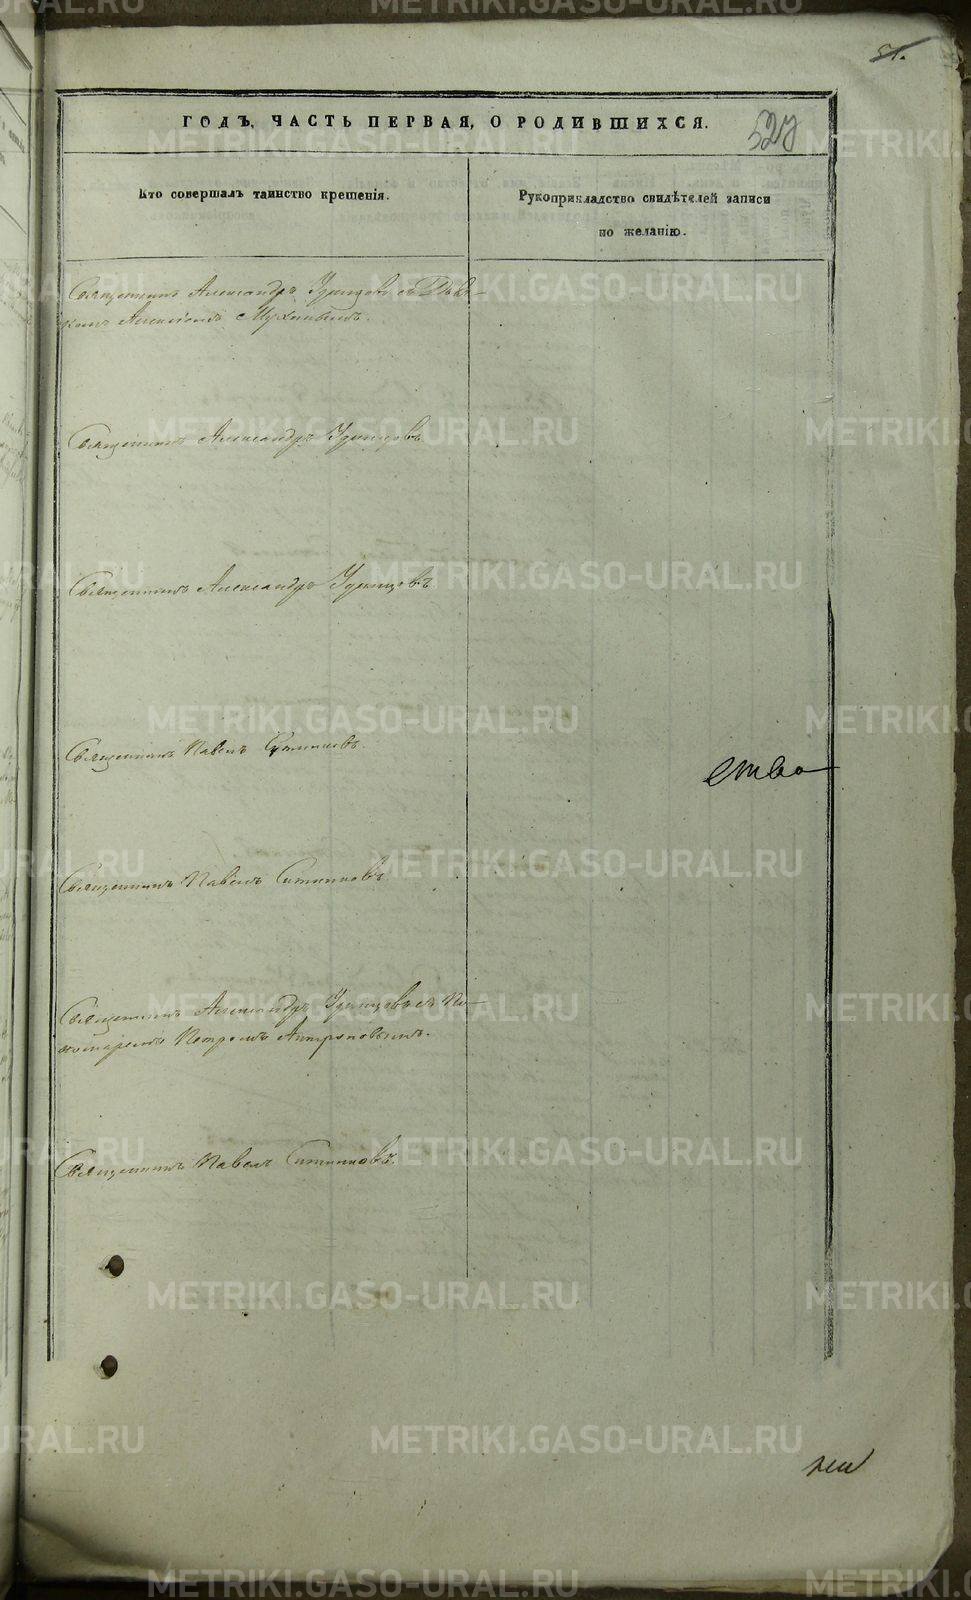 51.
ГОДЪ, ЧАСТЬ ПЕРВАЯ, О РОДИВШИХСЯ.
Кто совершалъ таинство крещенія.
Рукоприкладство свидѣтелей записи
по желанію.
Священникъ Александръ Удинцовъ съ Дья-
кономъ
Священникъ Александръ Удинцовъ
Священникъ Александръ Удинцовъ
Священникъ Павелъ Ситниковъ.
ства
Священникъ Павелъ Ситниковъ.
Священникъ Александръ Удинцовъ съ По-
номаремъ Петромъ Антроповымъ.
Священникъ Павелъ Ситниковъ.
METRIKI.GASO-URAL.RU